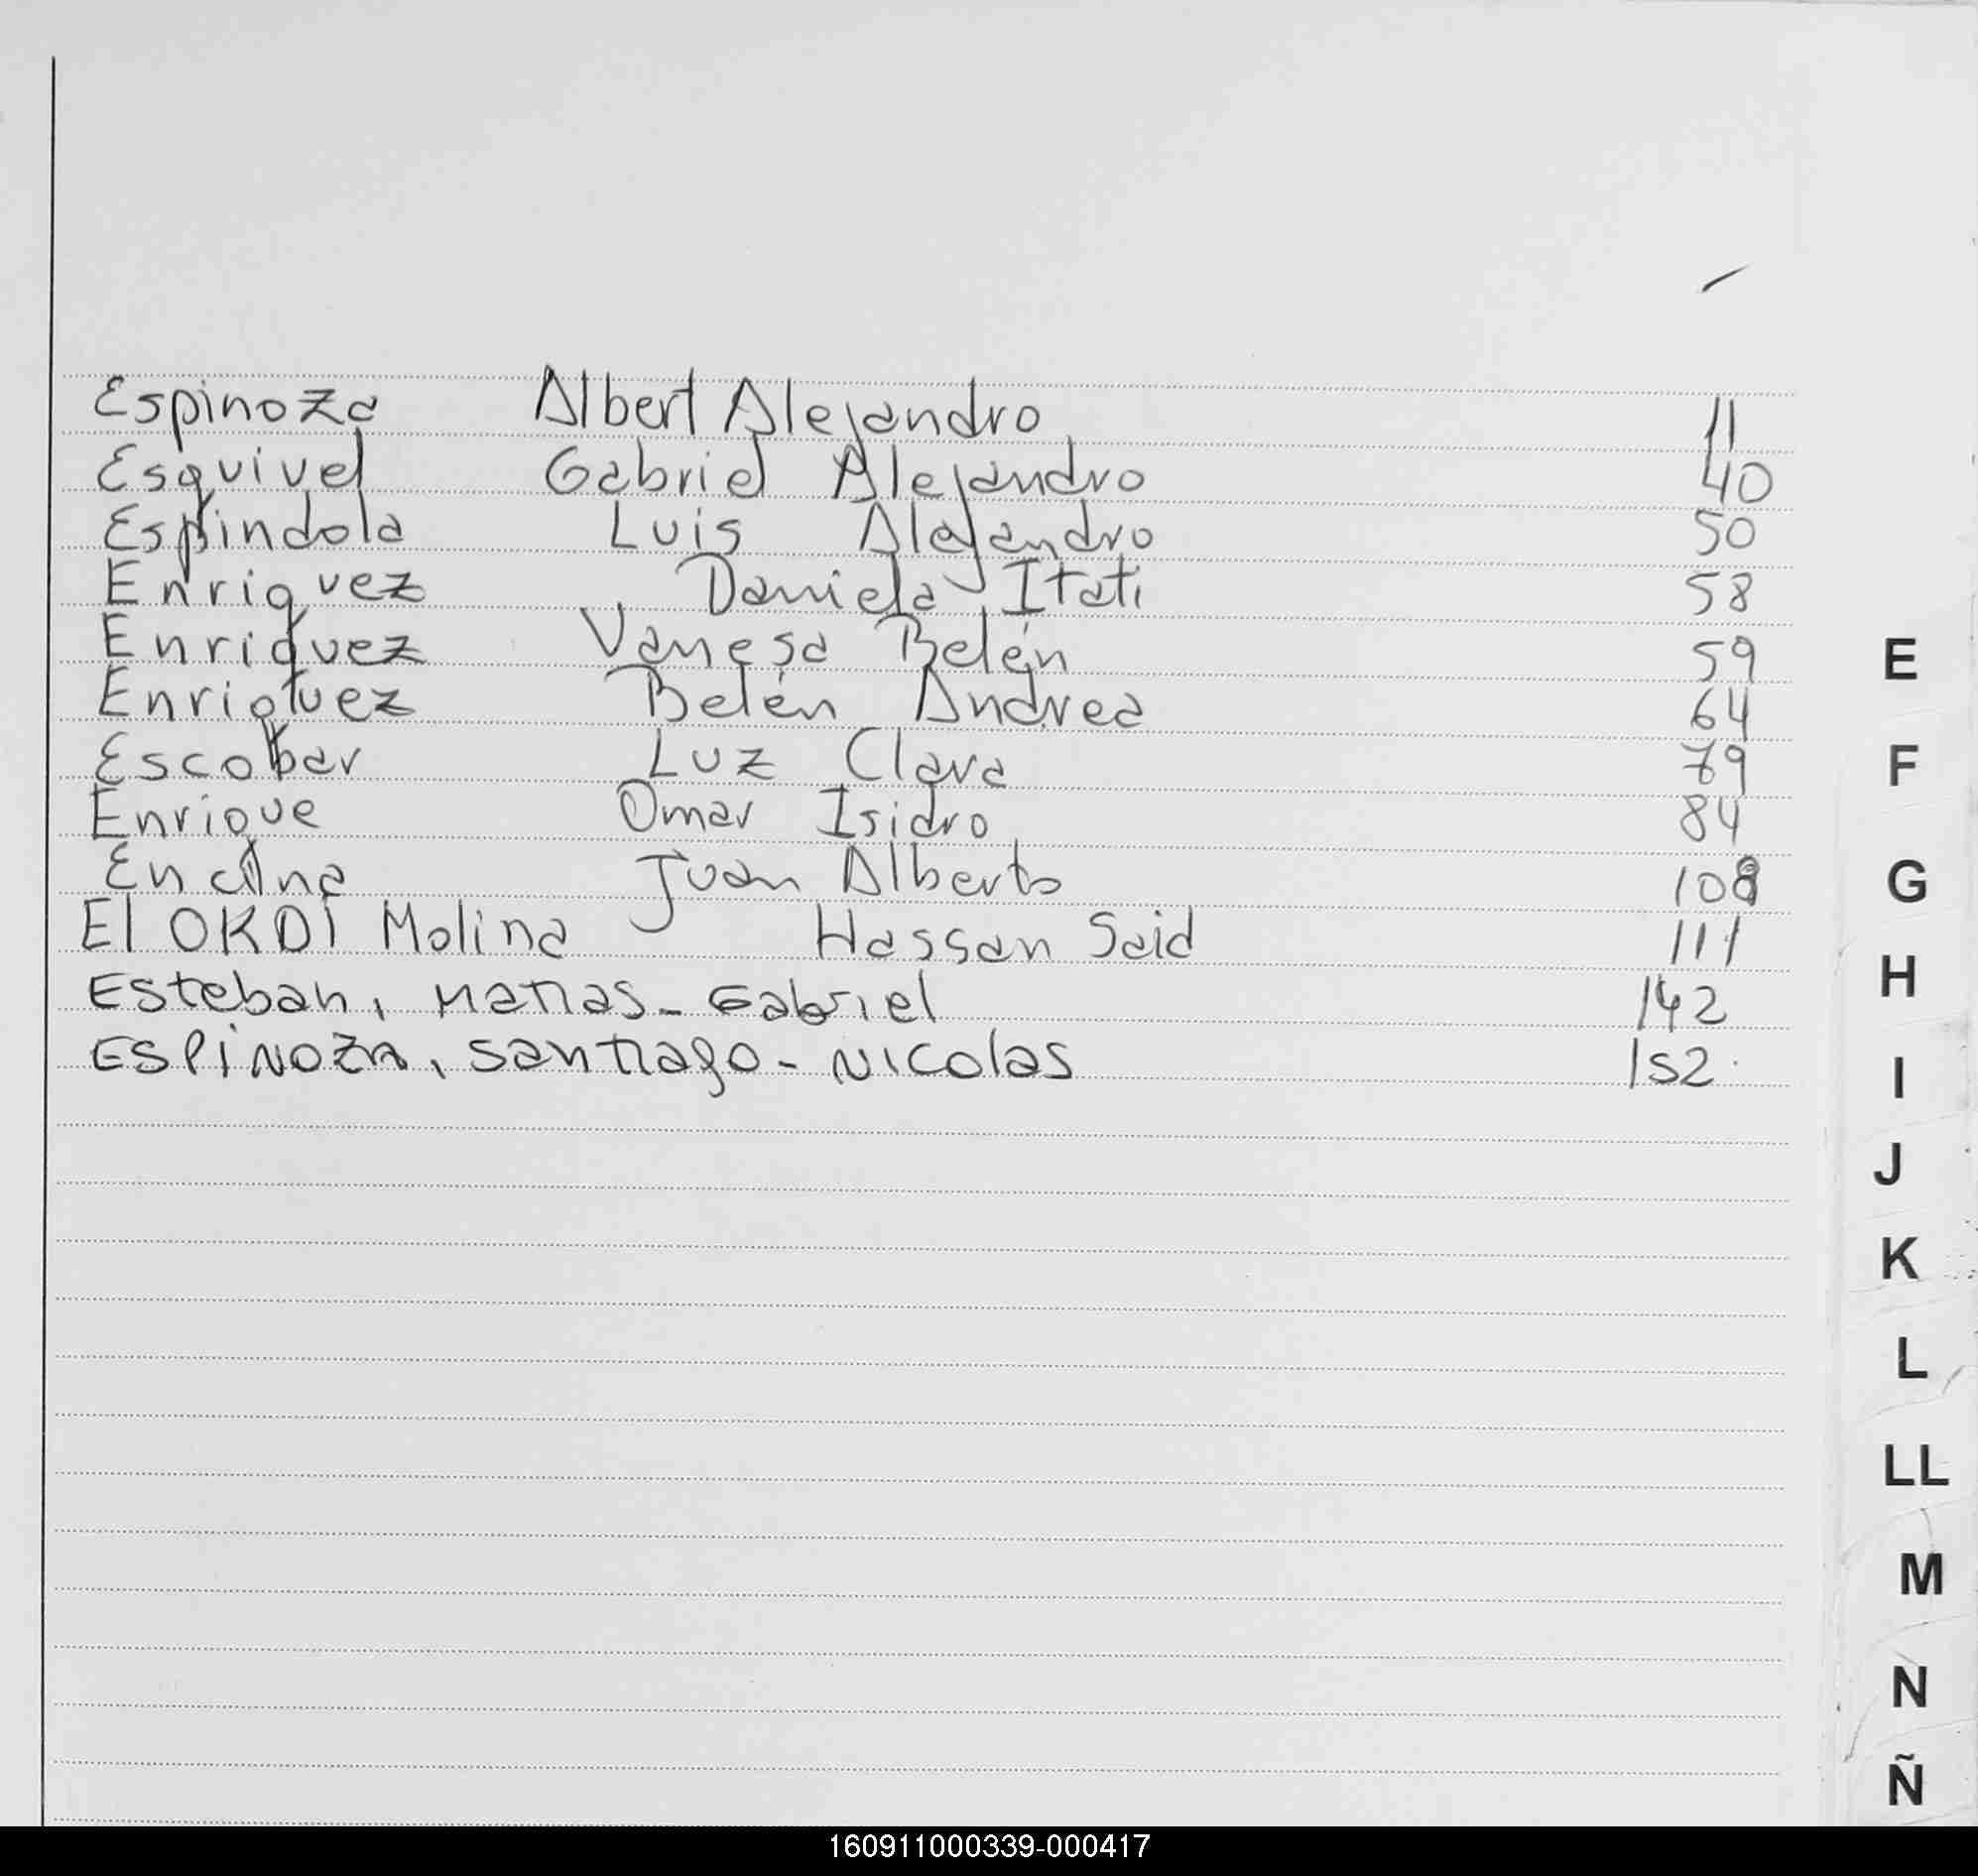 Espinoza Albert Alejandro 11
Esquivel Gabriel Alejandro 40
Espindola Luis Alejandro 50
Enriquez Daniela Itati 58
Enriquez Vanesa Belén 59
Enriquez Belén Andrea 64
Escobar Luz Clara 79
Enrique Omar Isidro 84
Encina Juan Alberto 108
El OKDI Molina Hassan Said 111
Esteban, Matias - Gabriel 142
ESPINOZA, Santiago - Nicolas 152
E
F
G
H
I
J
K
L
LL
M
N
Ñ
160911000339-000417